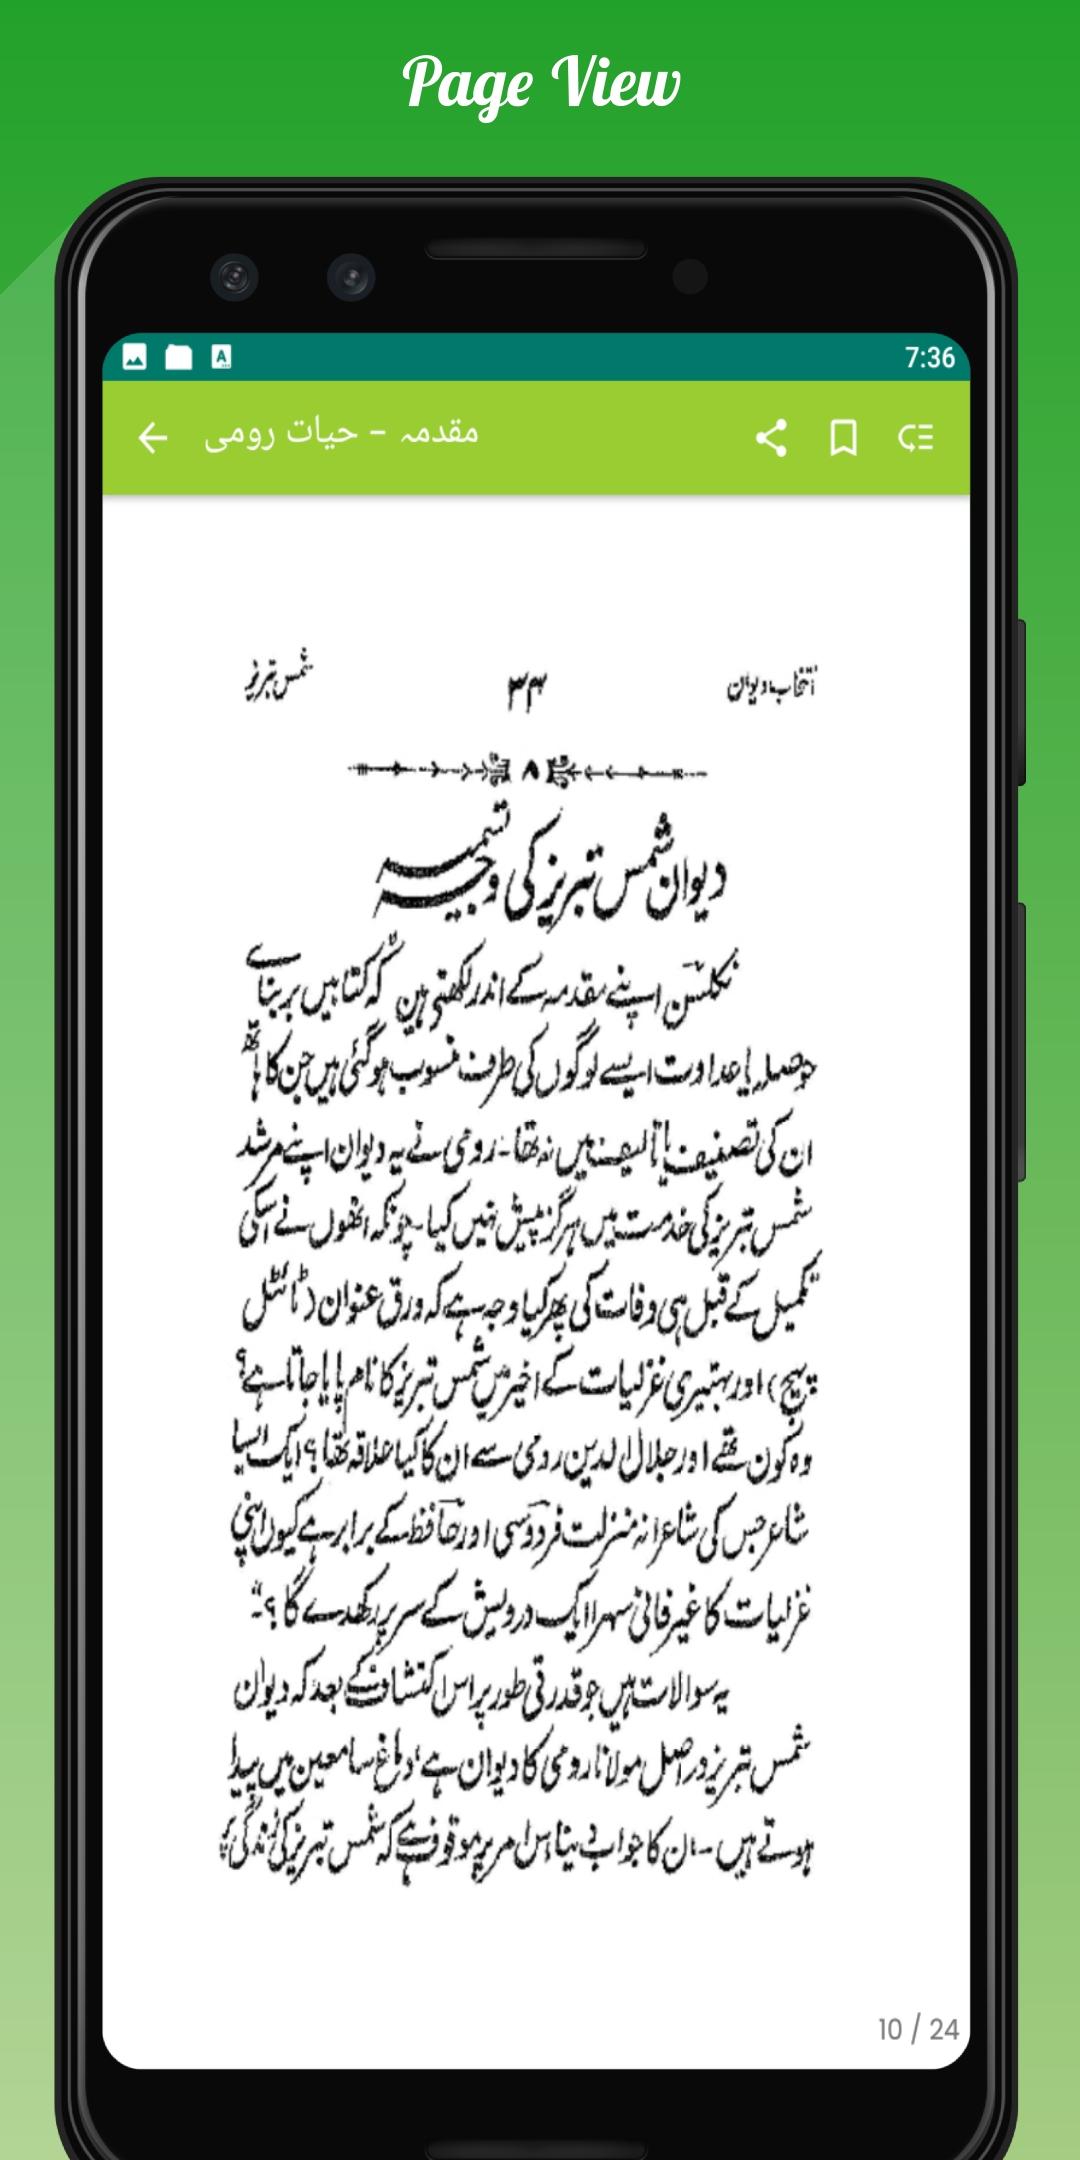 Page View
7:36
مقدمہ – حیات رومی
انتخاب دیوان
۳۴
شمس تبریز
۸
دیوان شمس تبریز کی وجہ تسمیہ
نکلسن اپنے مقدمہ کے اندر لکھتی ہین کہ کتابیں بر بنائے
حوصلہ یا عداوت ایسے لوگوں کی طرف منسوب ہوگئی ہیں جن کا ہاتھ
ان کی تصنیف یا تالیف میں نہ تھا۔ رومی نے یہ دیوان اپنے مرشد
شمس تبریز کی خدمت میں ہرگز پیش نہیں کیا۔ چونکہ انھوں نے اسکی
تکمیل کے قبل ہی وفات کی پھر کیا وجہ ہے کہ ورق عنوان (ٹائٹل
پیج) اور بہتیری غزلیات کے اخیر میں شمس تبریز کا نام پایا جاتا ہے؟
وہ کون تھے اور جلال الدین رومی سے ان کا کیا علاقہ تھا؟ ایک ایسا
شاعر جس کی شاعرانہ منزلت فردوسی اور حافظ کے برابر ہے کیوں اپنی
غزلیات کا غیر فانی سہرا ایک درویش کے سر پر رکھدے گا؟"۔
یہ سوالات ہیں جو قدرتی طور پر اس اکتشاف کے بعد کہ دیوان
شمس تبریز دراصل مولانا رومی کا دیوان ہے، دماغ سامعین میں پیدا
ہوتے ہیں۔ ان کا جواب دینا اس امر پر موقوف ہے کہ شمس تبریز کی زندگی پر
10 / 24